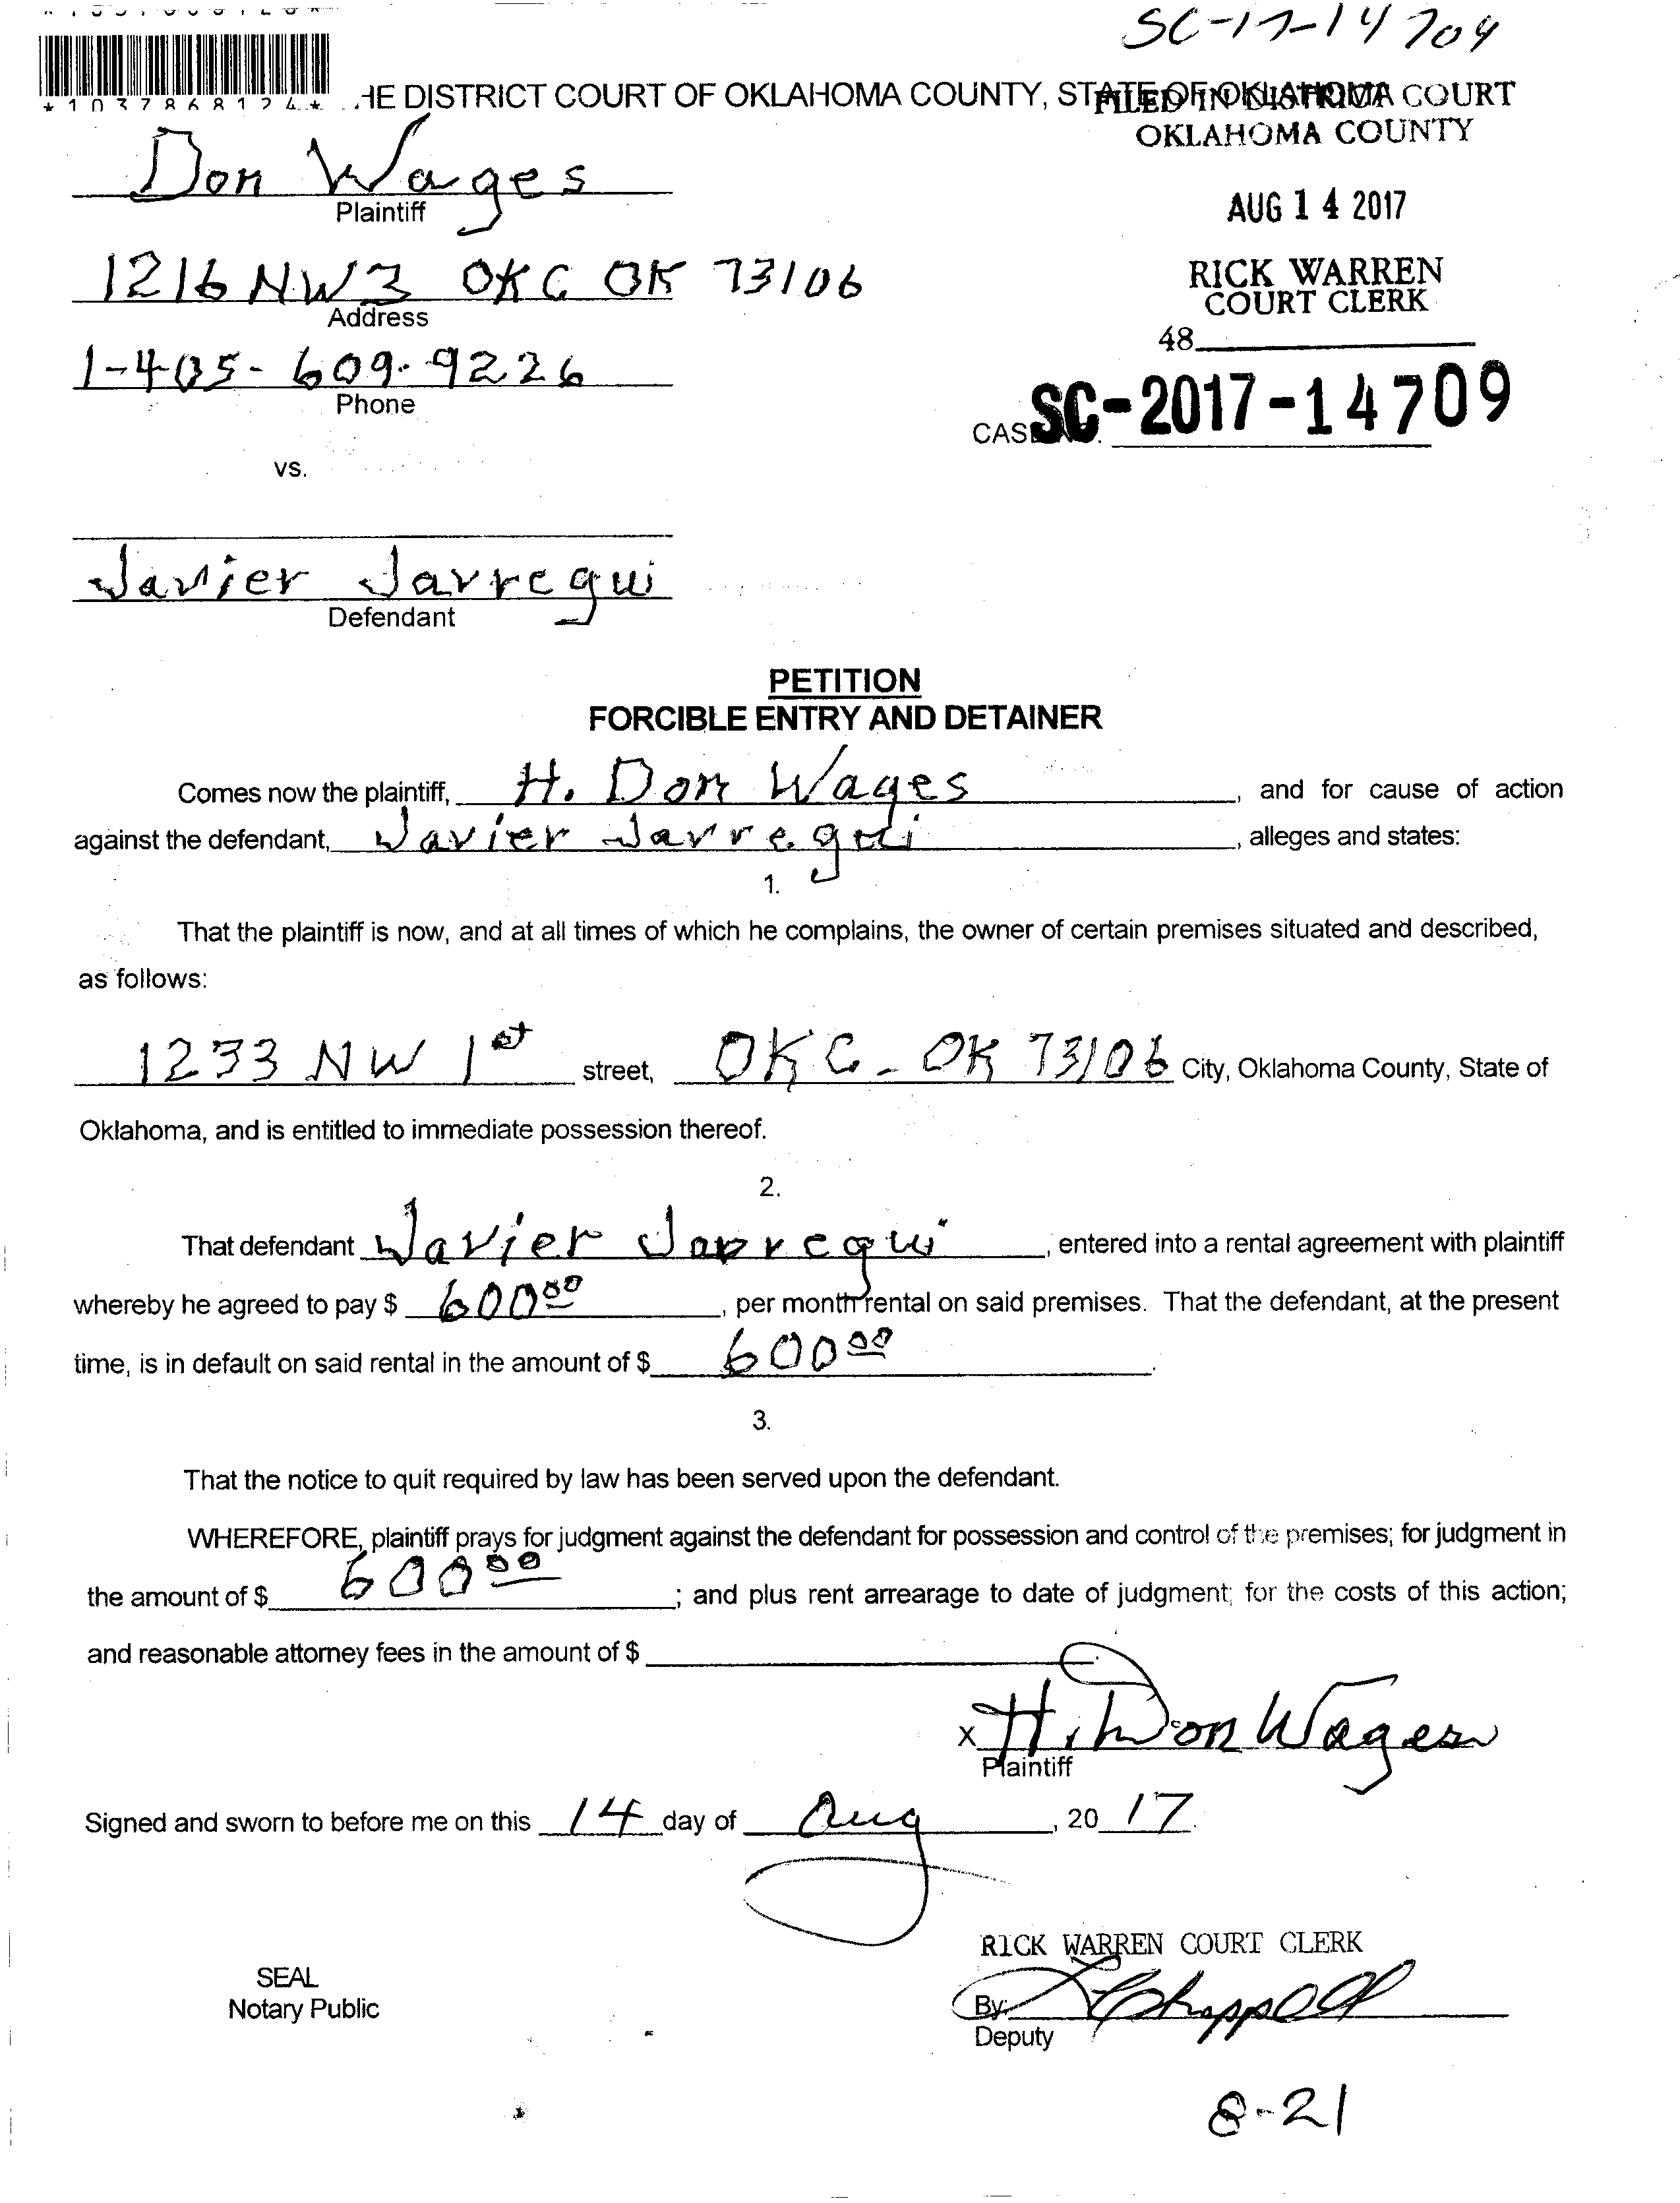 SC-17-14709
*1037868124*
HE DISTRICT COURT OF OKLAHOMA COUNTY, STATE OF OKLAHOMA
FILED IN DISTRICT COURT
OKLAHOMA COUNTY
Don Wages
Plaintiff
AUG 14 2017
1216 NW 3 OKC OK 73106
Address
RICK WARREN
COURT CLERK
48
1-405-609-9226
Phone
CASE NO. SC-2017-14709
vs.
Javier Jarregui
Defendant
PETITION
FORCIBLE ENTRY AND DETAINER
Comes now the plaintiff, H. Don Wages, and for cause of action
against the defendant, Javier Jarregui, alleges and states:
1.
That the plaintiff is now, and at all times of which he complains, the owner of certain premises situated and described,
as follows:
1233 NW 1st street, OKC - OK 73106 City, Oklahoma County, State of
Oklahoma, and is entitled to immediate possession thereof.
2.
That defendant Javier Jarregui, entered into a rental agreement with plaintiff
whereby he agreed to pay $ 600 00, per month rental on said premises. That the defendant, at the present
time, is in default on said rental in the amount of $ 600 00.
3.
That the notice to quit required by law has been served upon the defendant.
WHEREFORE, plaintiff prays for judgment against the defendant for possession and control of the premises; for judgment in
the amount of $ 600 00; and plus rent arrearage to date of judgment; for the costs of this action;
and reasonable attorney fees in the amount of $
x H. Don Wages
Plaintiff
Signed and sworn to before me on this 14 day of Aug, 20 17.
RICK WARREN COURT CLERK
SEAL
Notary Public
By: Chappell
Deputy
8-21